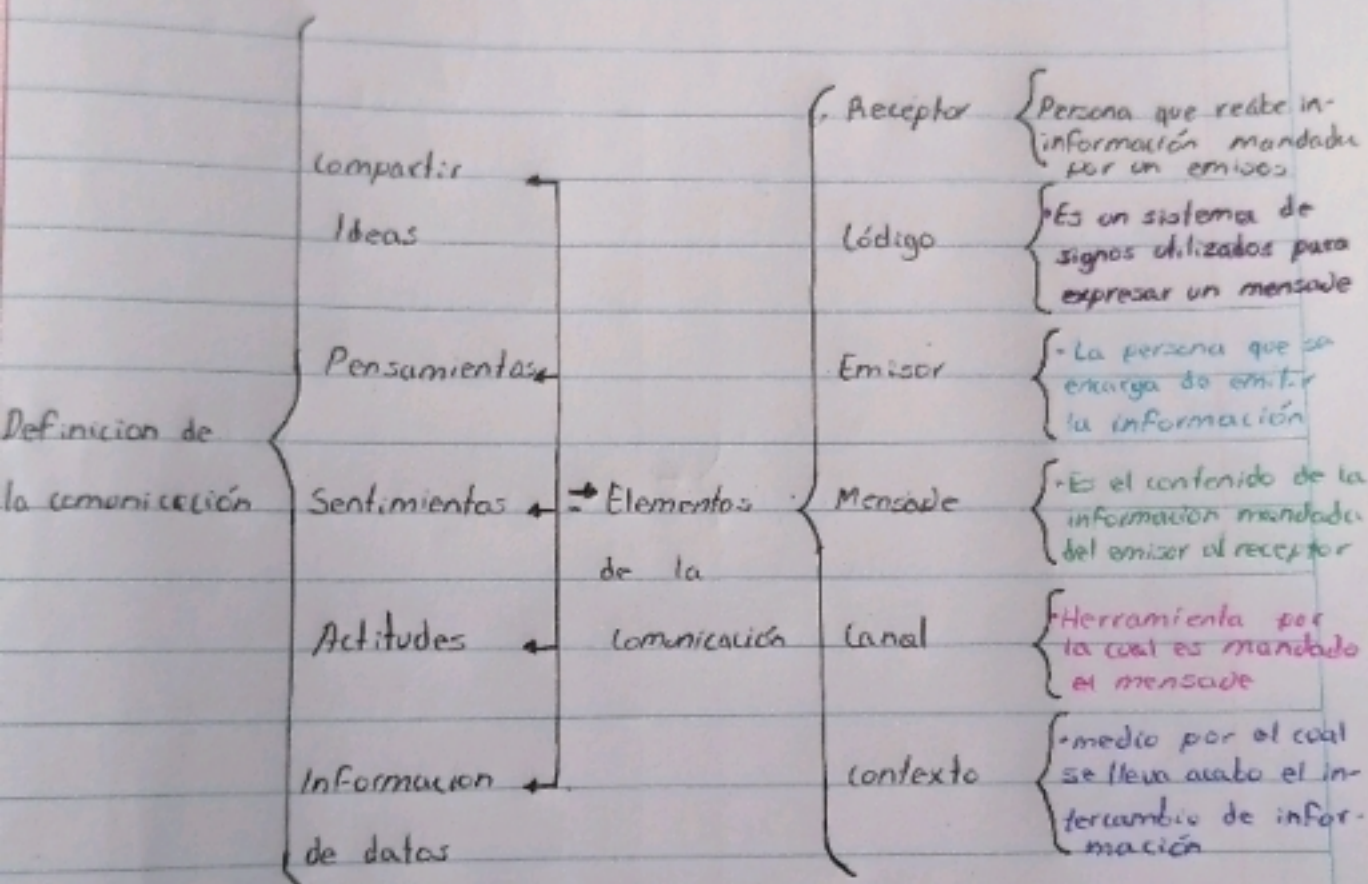 Definicion de
la comunicación
Compartir
Ideas
Pensamientos
Sentimientos
Actitudes
Informacion
de datos
Elementos
de la
Comunicación
Receptor
Persona que recibe in-
información mandada
por un emisor
Código
Es un sistema de
signos utilizados para
expresar un mensaje
Emisor
- La persona que se
encarga de emitir
la información
Mensaje
- Es el contenido de la
información mandada
del emisor al receptor
Canal
Herramienta por
la cual es mandado
el mensaje
contexto
- medio por el cual
se lleva acabo el in-
tercambio de infor-
mación